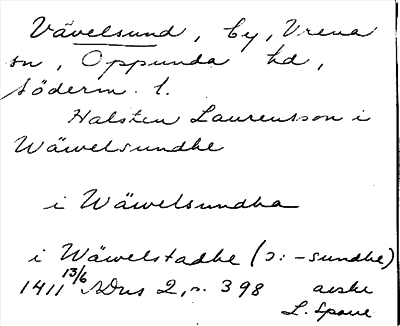 Vävelsund, by, Vrena
sn, Oppunda hd,
Söderm. l.
Halsten Laurensson i
Wäwelsundhe
i Wäwelsundha
i Wäwelstadhe (ɔ: -sundhe)
1411 13/6 SDns 2, s. 398 avskr
L. Spare